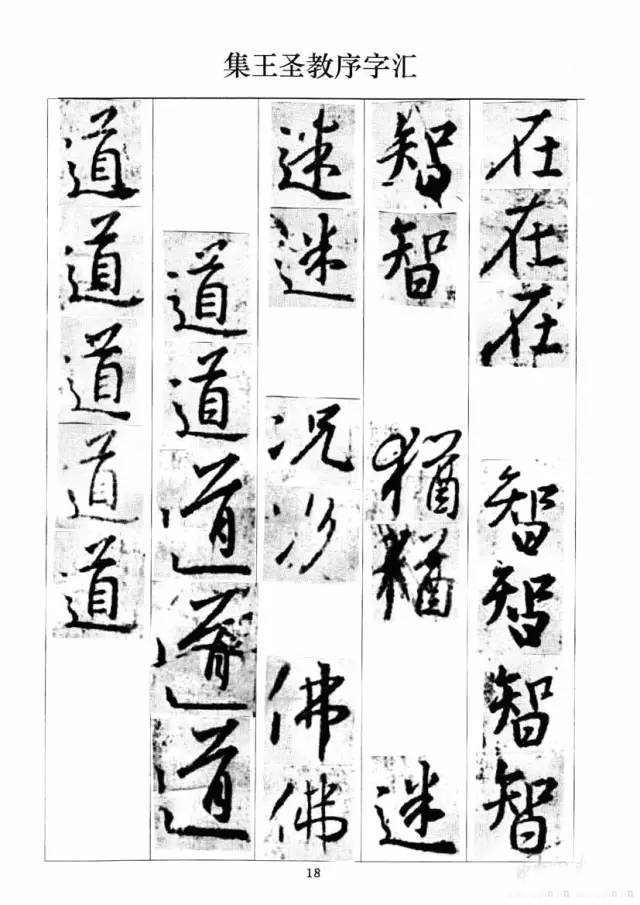 集王圣教序字汇
在在在智智智智
智智猶猶迷
迷迷况况佛佛
道道道道道
道道道道道
18